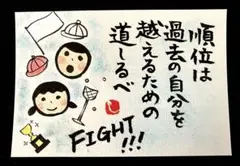 順位は
過去の自分を
越えるための
道しるべ
FIGHT!!!